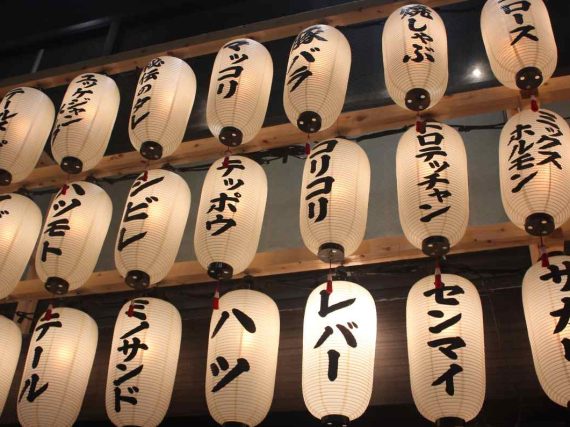 ユッケジャン
秘伝のタレ
マッコリ
豚バラ
焼しゃぶ
ロース
ハツモト
シビレ
テッポウ
コリコリ
トロテッチャン
ミックス
ホルモン
テール
ミノサンド
ハツ
レバー
センマイ
サガリ